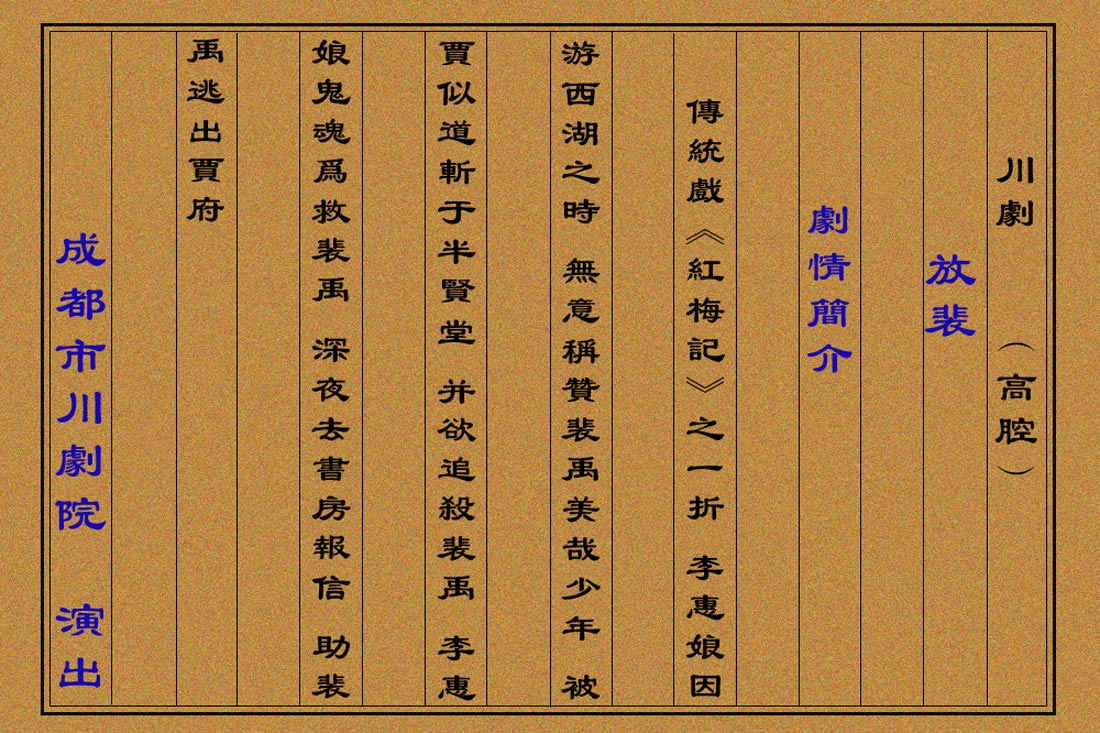 川劇 （高腔）
放裴
劇情簡介
傳統戲《紅梅記》之一折 李惠娘因
游西湖之時 無意稱贊裴禹美哉少年 被
賈似道斬于半賢堂 并欲追殺裴禹 李惠
娘鬼魂爲救裴禹 深夜去書房報信 助裴
禹逃出賈府
成都市川劇院 演出